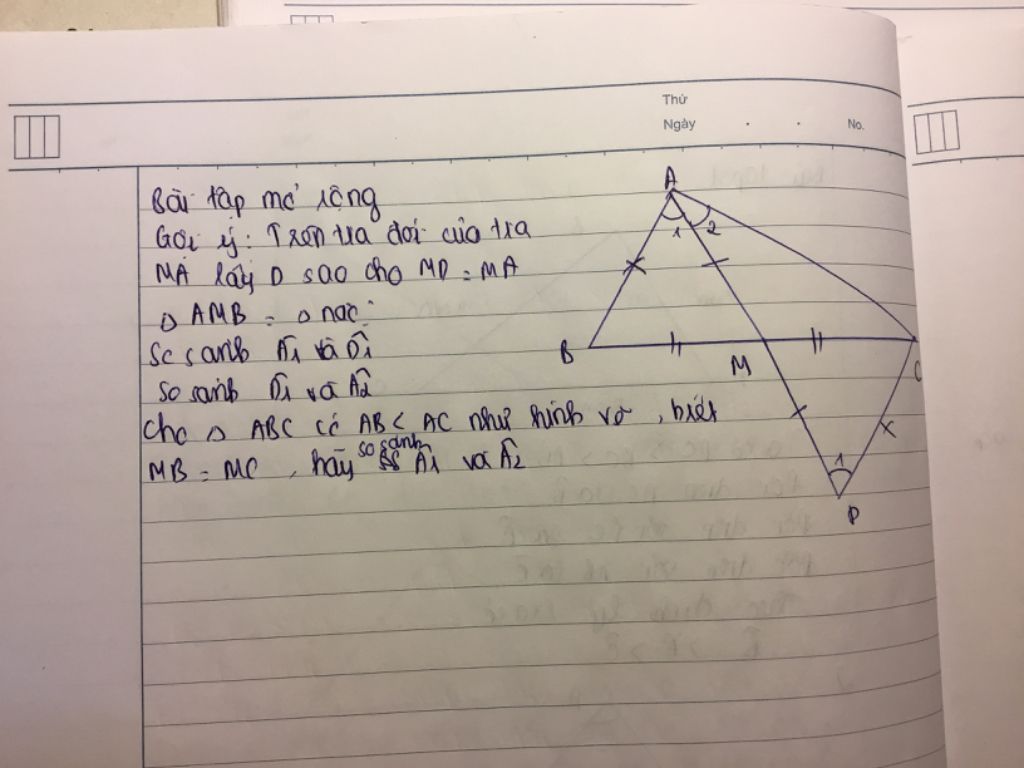 Thứ
Ngày . . No.
Bài tập mở rộng
Gợi ý: Trên tia đối của tia
MA lấy D sao cho MD = MA
△ AMB = △ nào:
So sánh Â1 và D̂1
So sánh D̂1 và Â2
Cho △ ABC có AB < AC như hình vẽ, biết
MB = MC, hãy so sánh Â1 và Â2
A
1 2
B
M
C
1
D